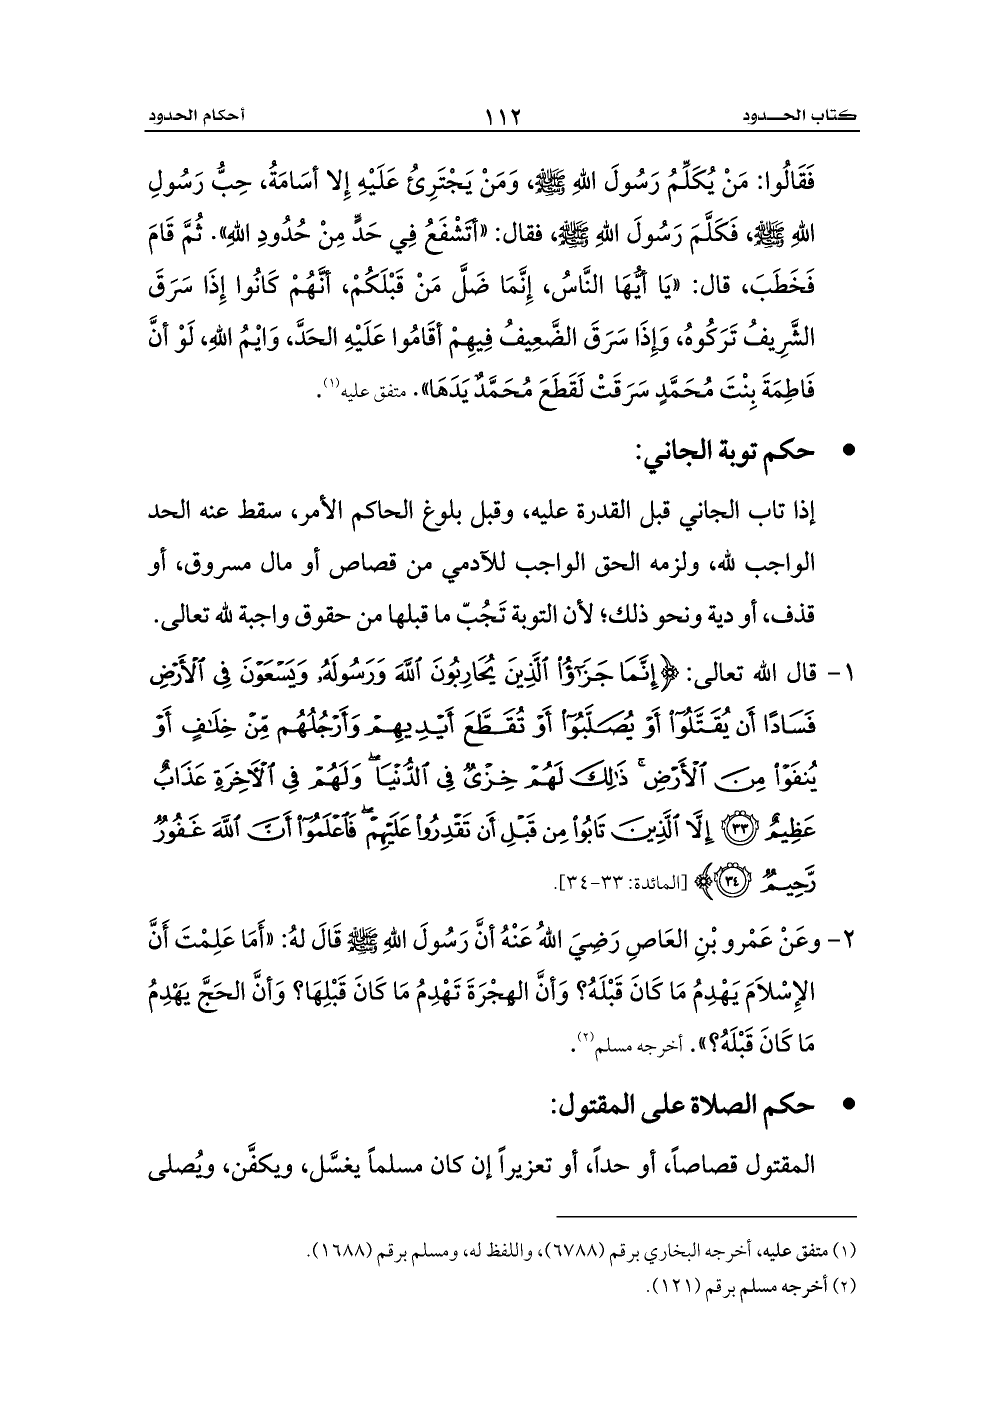 كتاب الحـــدود ١١٢ أحكام الحدود
فَقَالُوا: مَنْ يُكَلِّمُ رَسُولَ اللهِ ﷺ، وَمَنْ يَجْتَرِئُ عَلَيْهِ إلا أسَامَةُ، حِبُّ رَسُولِ
اللهِ ﷺ، فَكَلَّمَ رَسُولَ اللهِ ﷺ، فقال: «أتَشْفَعُ فِي حَدٍّ مِنْ حُدُودِ اللهِ». ثُمَّ قَامَ
فَخَطَبَ، قال: «يَا أيُّهَا النَّاسُ، إنَّمَا ضَلَّ مَنْ قَبْلَكُمْ، أنَّهُمْ كَانُوا إذَا سَرَقَ
الشَّرِيفُ تَرَكُوهُ، وَإذَا سَرَقَ الضَّعِيفُ فِيهِمْ أقَامُوا عَلَيْهِ الحَدَّ، وَايْمُ اللهِ، لَوْ أنَّ
فَاطِمَةَ بِنْتَ مُحَمَّدٍ سَرَقَتْ لَقَطَعَ مُحَمَّدٌ يَدَهَا». متفق عليه(١).
• حكم توبة الجاني:
إذا تاب الجاني قبل القدرة عليه، وقبل بلوغ الحاكم الأمر، سقط عنه الحد
الواجب لله، ولزمه الحق الواجب للآدمي من قصاص أو مال مسروق، أو
قذف، أو دية ونحو ذلك؛ لأن التوبة تَجُبّ ما قبلها من حقوق واجبة لله تعالى.
١- قال الله تعالى: ﴿إِنَّمَا جَزَٰٓؤُا۟ ٱلَّذِينَ يُحَارِبُونَ ٱللَّهَ وَرَسُولَهُۥ وَيَسْعَوْنَ فِى ٱلْأَرْضِ
فَسَادًا أَن يُقَتَّلُوٓا۟ أَوْ يُصَلَّبُوٓا۟ أَوْ تُقَطَّعَ أَيْدِيهِمْ وَأَرْجُلُهُم مِّنْ خِلَٰفٍ أَوْ
يُنفَوْا۟ مِنَ ٱلْأَرْضِ ۚ ذَٰلِكَ لَهُمْ خِزْىٌ فِى ٱلدُّنْيَا ۖ وَلَهُمْ فِى ٱلْآخِرَةِ عَذَابٌ
عَظِيمٌ ٣٣ إِلَّا ٱلَّذِينَ تَابُوا۟ مِن قَبْلِ أَن تَقْدِرُوا۟ عَلَيْهِمْ ۖ فَٱعْلَمُوٓا۟ أَنَّ ٱللَّهَ غَفُورٌ
رَّحِيمٌ ٣٤﴾ [المائدة: ٣٣-٣٤].
٢- وعَنْ عَمْرِو بْنِ العَاصِ رَضِيَ اللهُ عَنْهُ أنَّ رَسُولَ اللهِ ﷺ قَالَ لهُ: «أَمَا عَلِمْتَ أنَّ
الإسْلاَمَ يَهْدِمُ مَا كَانَ قَبْلَهُ؟ وَأنَّ الهِجْرَةَ تَهْدِمُ مَا كَانَ قَبْلِهَا؟ وَأنَّ الحَجَّ يَهْدِمُ
مَا كَانَ قَبْلَهُ؟». أخرجه مسلم(٢).
• حكم الصلاة على المقتول:
المقتول قصاصاً، أو حداً، أو تعزيراً إن كان مسلماً يغسَّل، ويكفَّن، ويُصلى
(١) متفق عليه، أخرجه البخاري برقم (٦٧٨٨)، واللفظ له، ومسلم برقم (١٦٨٨).
(٢) أخرجه مسلم برقم (١٢١).